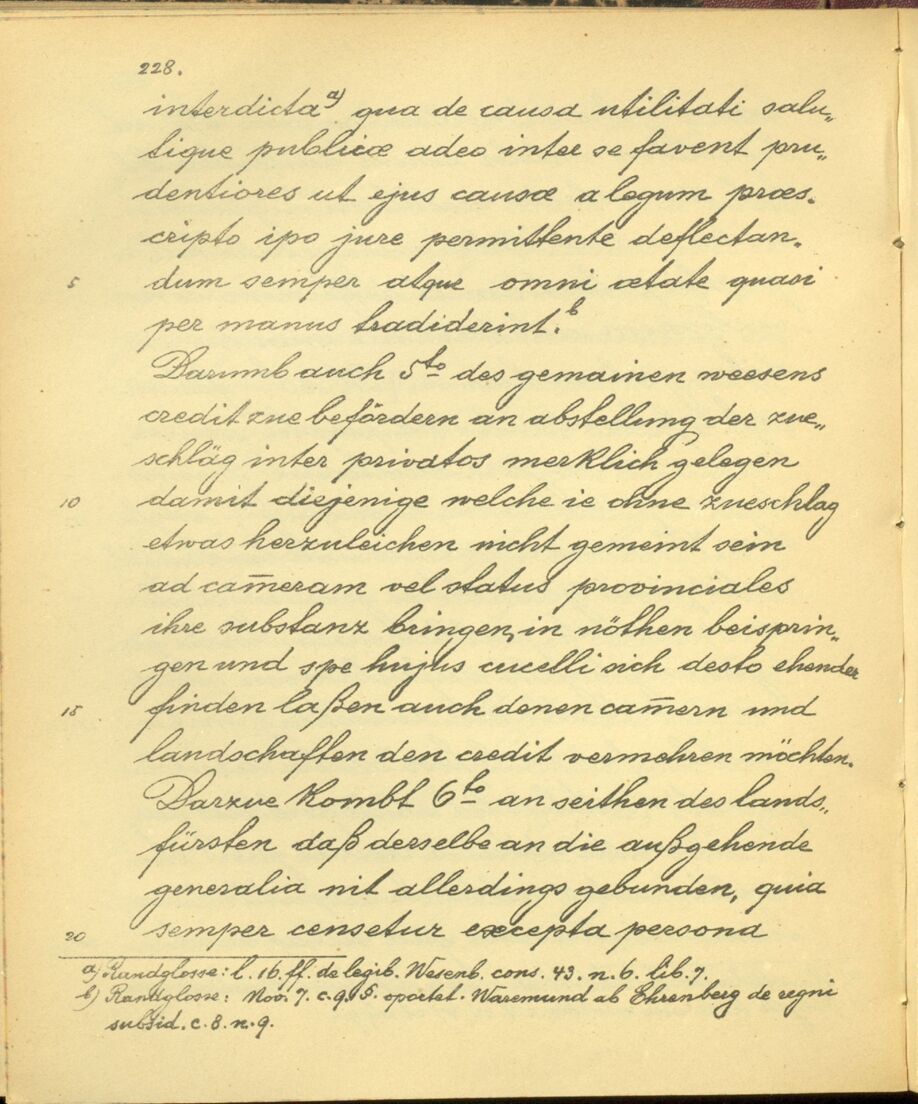 228.
interdicta a) qua de causa utilitati salu„
tique publicæ adeo inter se favent pru„
dentiores ut ejus causæ a legum præs„
cripto ipo jure permittente deflectan„
5 dum semper atque omni ætate quasi
per manus tradiderint. b
Darumb auch 5to des gemainen weesens
credit zue befördern an abstellung der zue„
schläg inter privatos merklich gelegen
10 damit diejenige welche ie ohne zueschlag
etwas herzuleichen nicht gemeint sein
ad cam̅eram vel status provinciales
ihre substanz bringen, in nöthen beisprin„
gen und spe hujus cucelli sich desto ehender
15 finden laßen auch denen cam̅ern und
landschaften den credit vermehren möchten.
Darzue kombt 6to an seithen des lands„
fürsten daß derselbe an die außgehende
generalia nit allerdings gebunden, quia
20 semper censetur excepta persona
a) Randglosse: l. 16. ff. de legib. Wesenb. cons. 43. n. 6. lib. 7.
b) Randglosse: Nov. 7. c. 9. §. oportet. Waremund ab Ehrenberg de regni
subsid. c. 8. n. 9.